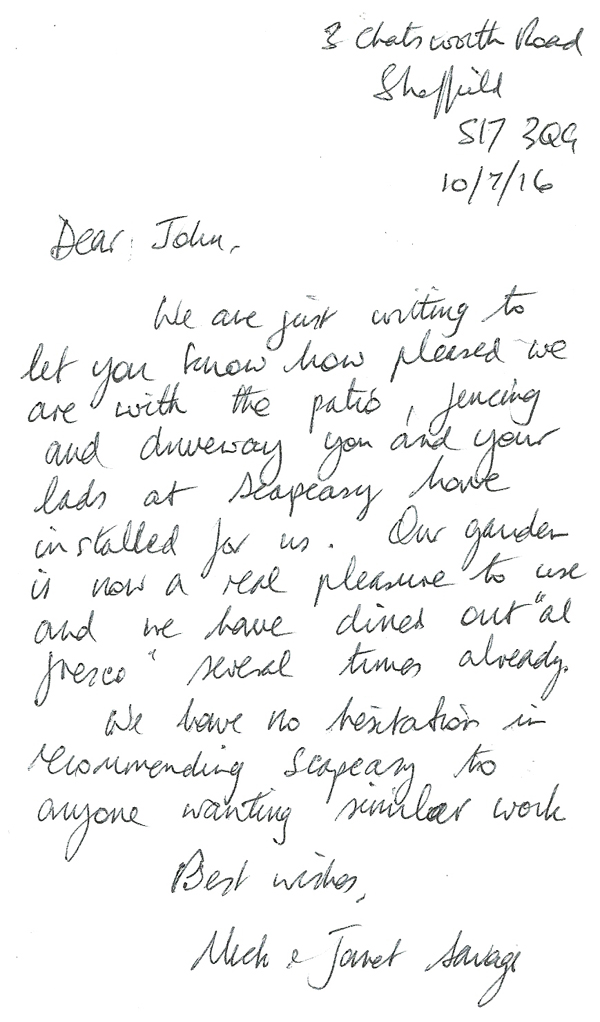 3 Chatsworth Road
Sheffield
S17 3QG
10/7/16
Dear John,
We are just writing to
let you know how pleased we
are with the patio, fencing
and driveway you and your
lads at Scapeasy have
installed for us. Our garden
is now a real pleasure to use
and we have dined out "al
fresco" several times already.
We have no hesitation in
recommending Scapeasy to
anyone wanting similar work
Best wishes,
Mick & Janet Savage